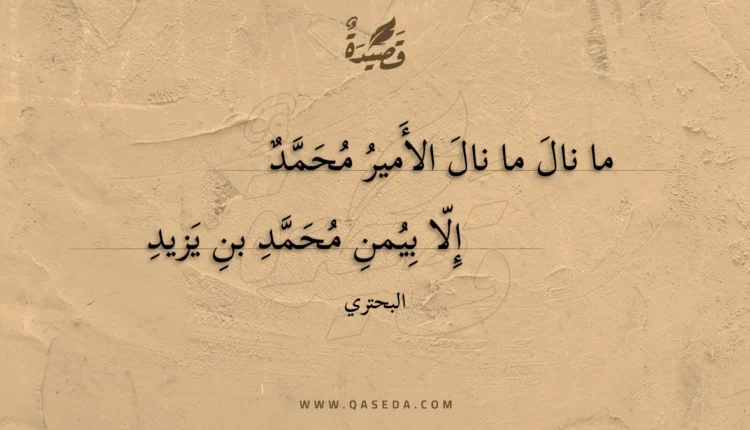 قَصِيدَةٌ
ما نالَ ما نالَ الأَميرُ مُحَمَّدٌ
إِلّا بِيُمنِ مُحَمَّدِ بنِ يَزيدِ
البحتري
WWW.QASEDA.COM